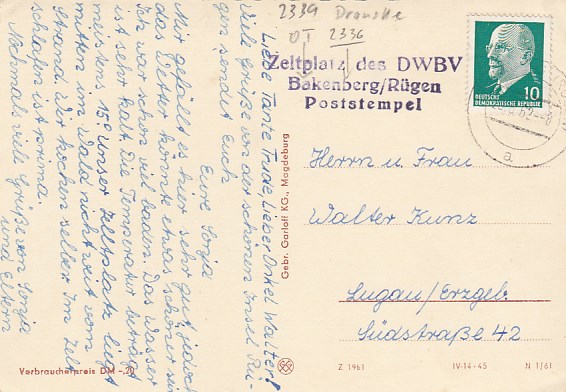 2339 Dranske
OT 2336
Zeltplatz des DWBV
Bakenberg/Rügen
Poststempel
10
DEUTSCHE
DEMOKRATISCHE REPUBLIK
a
Liebe Tante Trude, Lieber Onkel Walter!
Viele Grüße von der schönen Insel Rü-
gen sendet Euch
Eure Sonja
Mir gefällt es hier sehr gut, jedoch
das Wetter könnte etwas schöner sein.
Ich war schon viel baden. Das Wasser
ist sehr kalt. Die Temperatur beträgt
meistens 15°. Unser Zeltplatz liegt
mitten im Wald nicht weit vom
Strand. Wir kochen selber. Im Zelt
schlafen ist prima.
Nochmals viele Grüße von Sonja
und Eltern
Gebr. Garloff KG., Magdeburg
Herrn u. Frau
Walter Kunz
Lugau/Erzgeb.
Südstraße 42
Verbraucherpreis DM -.20
Z 1961
IV-14-45
N 1/61